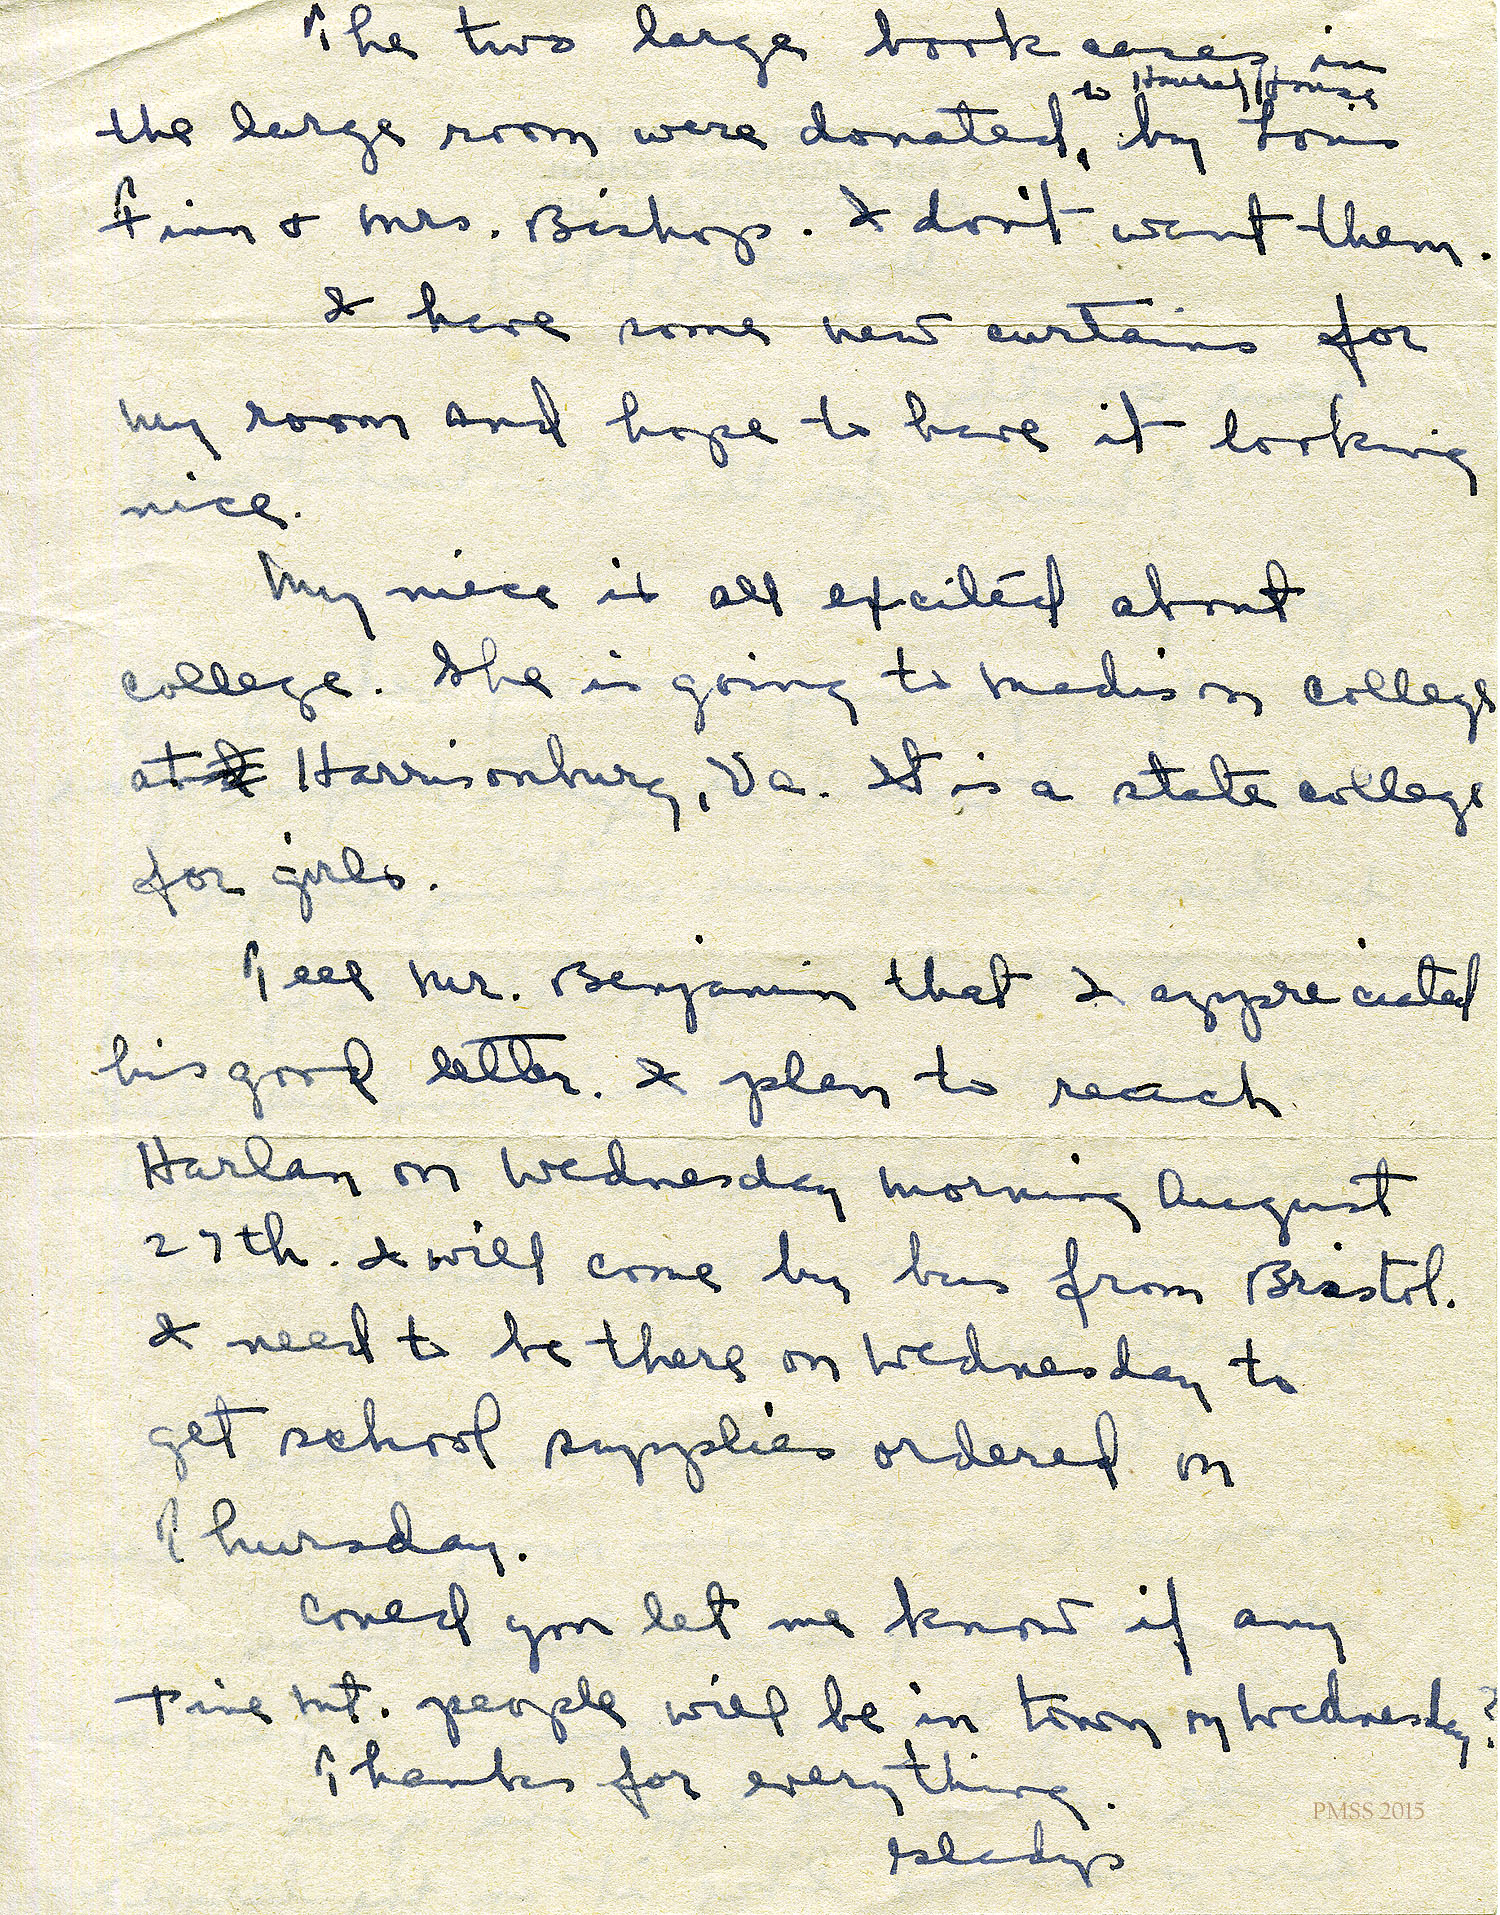 The two large book cases in
to House House
the large room were donated, by Lois
Finn + Mrs. Bishop. I don't want them.
I have some new curtains for
my room and hope to have it looking
nice.
My niece is all excited about
college. She is going to Madison College
at Harrisonburg, Va. It is a state college
for girls.
Tell Mr. Benjamin that I appreciated
his good letter. I plan to reach
Harlan on Wednesday morning August
27th. I will come by bus from Bristol.
I need to be there on Wednesday to
get school supplies ordered on
Thursday.
Could you let me know if any
Pine Mt. people will be in town on Wednesday?
Thanks for everything.
Gladys
PMSS 2015